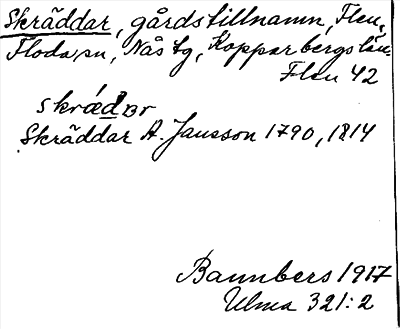 Skräddar, gårdstillnamn, Flen,
Floda sn, Nås tg, Kopparbergs län.
Flen 42
skrǽdar
Skräddar A. Jansson 1790, 1814
Bannbers 1917
Ulma 321:2